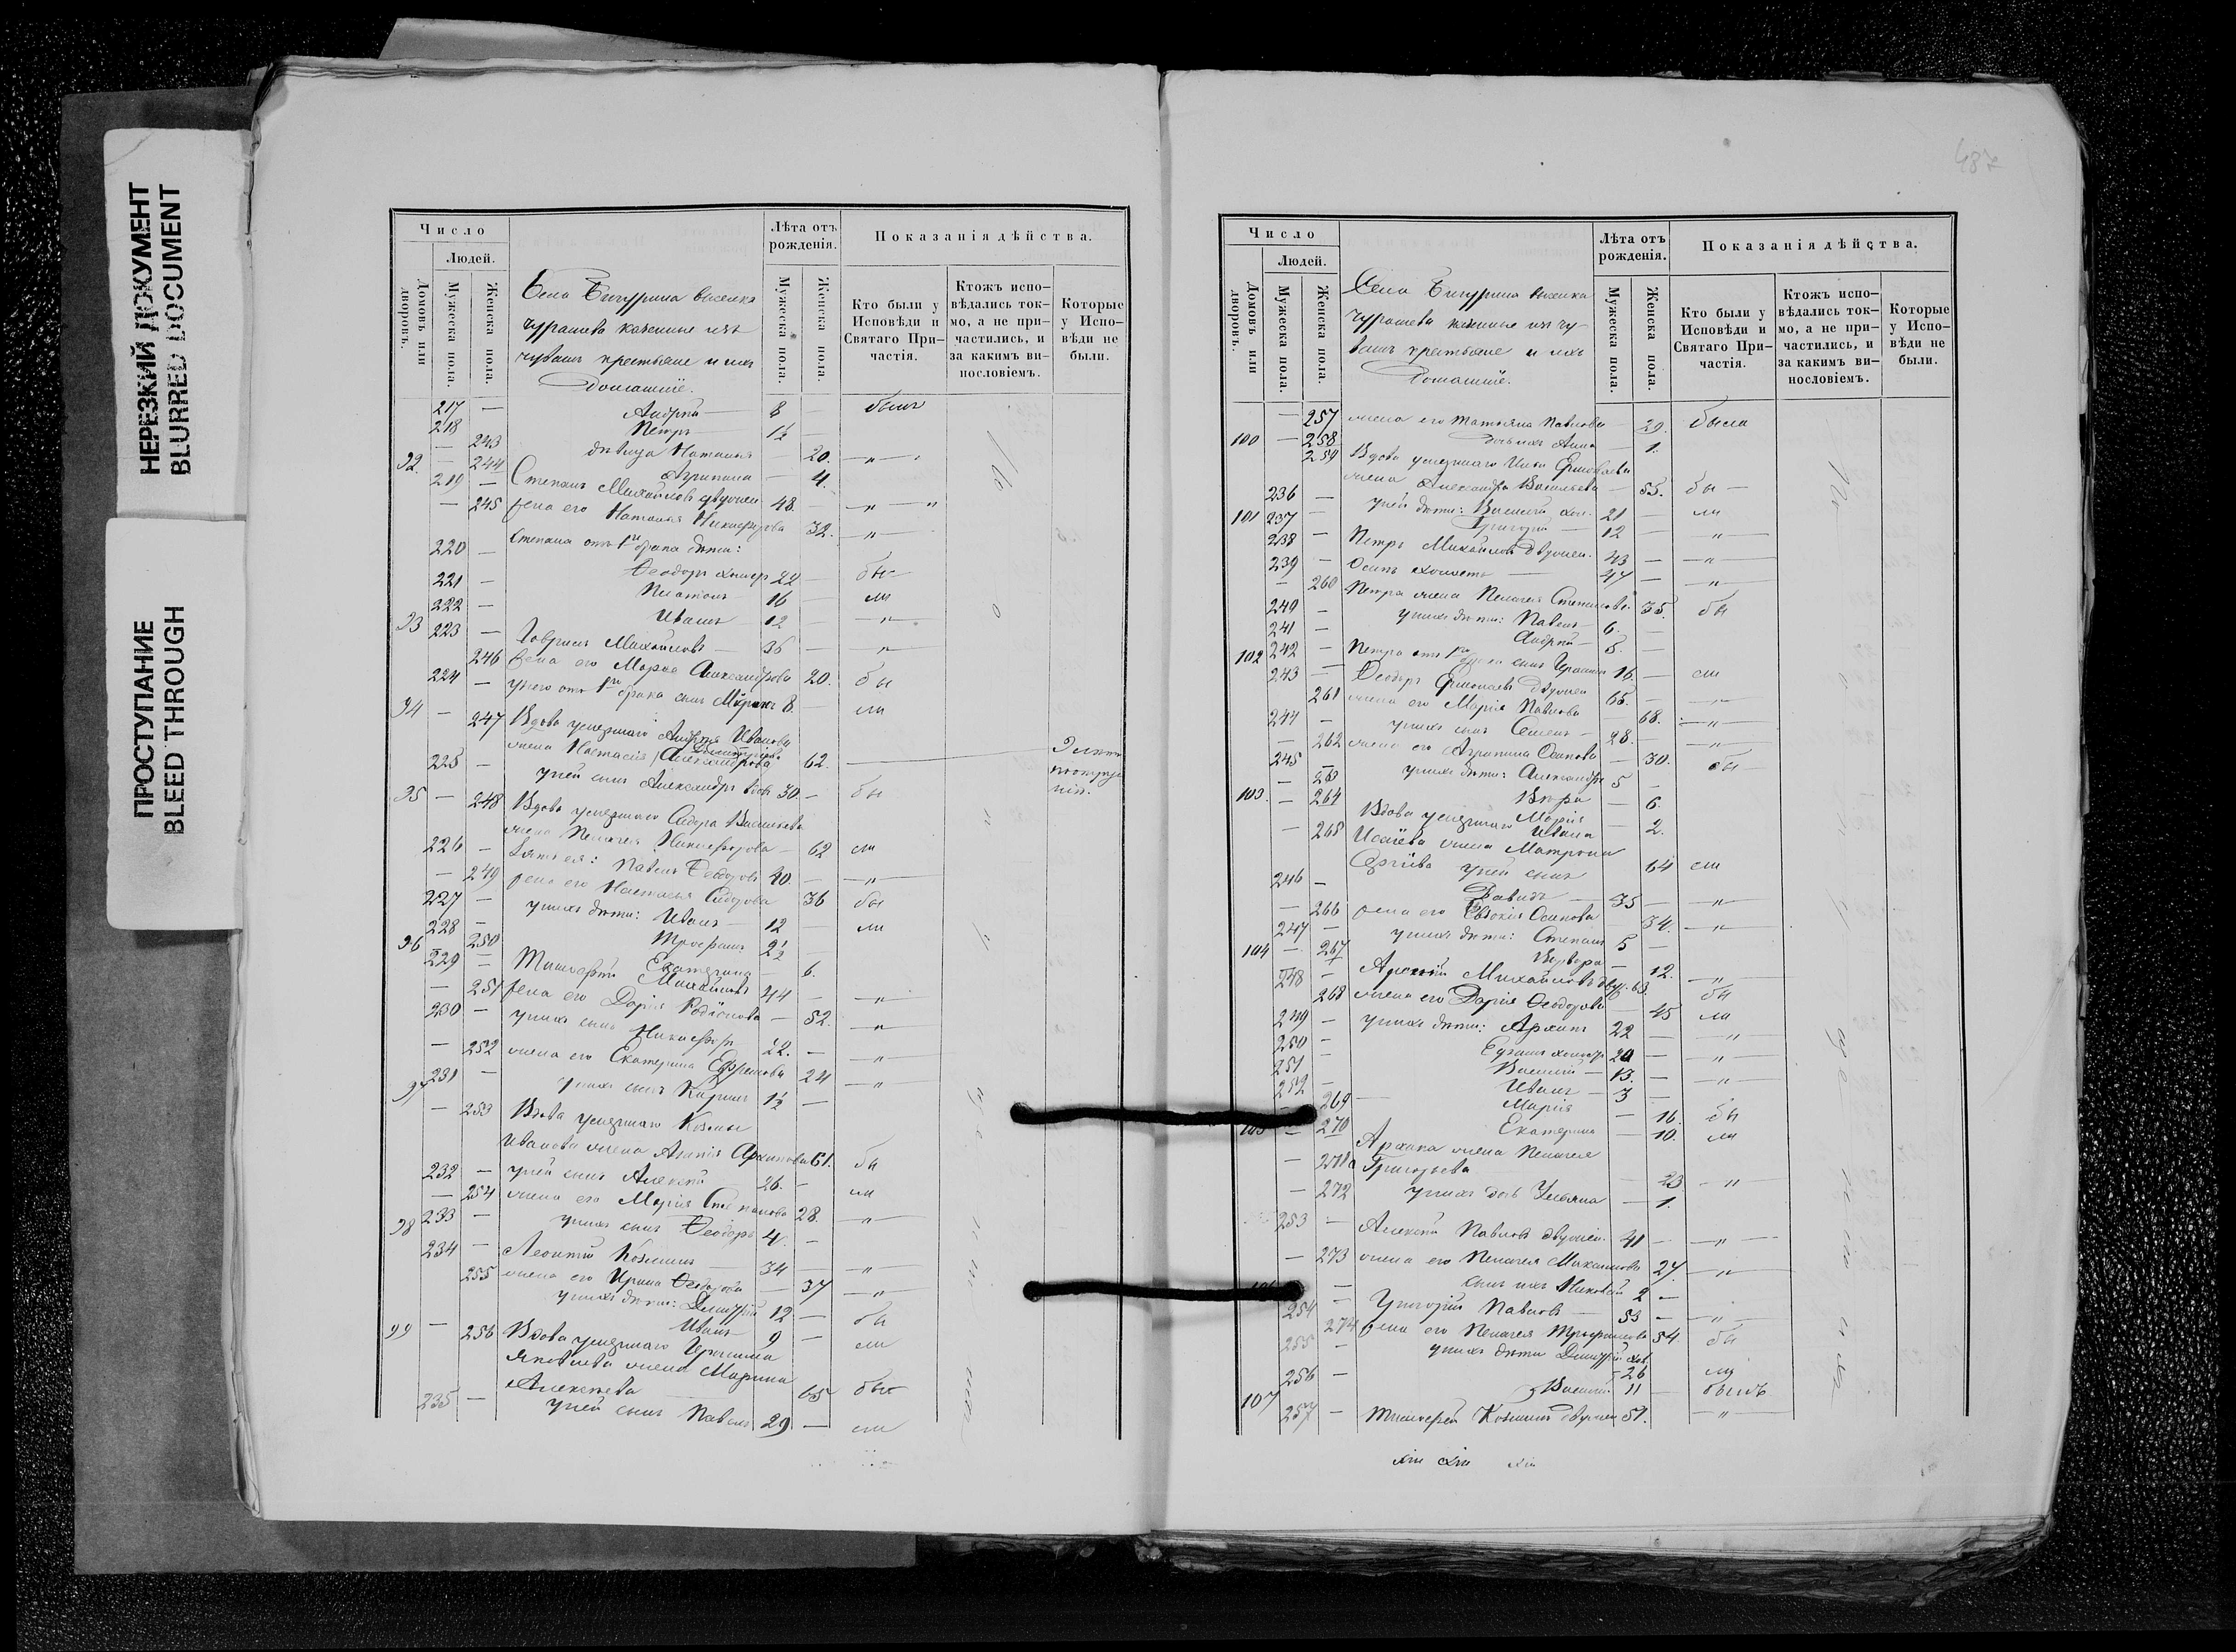 НЕРЕЗКИЙ ДОКУМЕНТ
BLURRED DOCUMENT
ПРОСТУПАНИЕ
BLEED THROUGH
Число
Людей.
Домовъ или дворовъ.
Мужеска пола.
Женска пола.
Лѣта отъ рожденія.
Мужеска пола.
Женска пола.
Показанія дѣйства.
Кто были у Исповѣди и Святаго При-частія.
Ктожъ испо-вѣдались ток-мо, а не при-частились, и за какимъ ви-нословіемъ.
Которые у Испо-вѣди не были.
Села Бичурина выселка
Чурашева казенные изъ
чувашъ крестьяне и ихъ
домашніе.
217 — Андрей — 8 — былъ
218 Петръ 1½
— 243 дѣвица Наталья — 20. — „ —
— 244 Агрипина — 4.
92. 219 — Степанъ Михайловъ двужен 48. — „ —
— 245 жена его Наталья Никифорова 32. — „ —
Степана отъ 1го брака дѣти:
220 — Ѳеодоръ 22 — бы
221 — Платонъ — 16 — ли
222 — Иванъ — 12 — „ —
93 223 — Гаврилъ Михайловъ — 36 — „ —
246 жена его Марѳа Александрова 20. бы
224 — у него отъ 1го брака сынъ 8. — ли
94 — 247 Вдова умершаго Андрея Иванова
жена Настасія Александрова 62. —
225 — у ней сынъ Александръ вдов 30. — бы
95 — 248 Вдова умершаго Сидора Васильева
жена Пелагея Никифорова — 62 ли
226 — Зять ея: Павелъ Ѳеодоровъ 40. — „ —
— 249 жена его Настасья Сидорова 36 бы
227 — у нихъ дѣти: Иванъ — 12 — ли
228 — Трофимъ 2½
250 Екатерина — 6.
96 229 — Тимофей Михайловъ 44 — „ —
— 251 жена его Дарія Родіонова — 52. — „ —
230 — у нихъ сынъ Никифоръ 22. — „ —
— 252 жена его Екатерина Ефремова 24 — „ —
231 — у нихъ сынъ Кирилъ 1½ —
97 — 253 Вдова умершаго Козмы
Иванова жена Агапія Архипова 61. бы
232 — у ней сынъ Алексѣй 26. — ли
— 254 жена его Марія Степанова 28. — „ —
233 — у нихъ сынъ Ѳеодоръ 4. —
98 234 — Леонтій Козминъ — 34 — „ —
255 жена его Ирина Ѳеодорова — 37 — „ —
у нихъ дѣти: Димитрій 12 — бы
Иванъ 9 — ли
99 — 256 Вдова умершаго
Яковлева жена Марина
Алексѣева 65 бы
235 — у ней сынъ Павелъ 29 — ли
487
Число
Людей.
Домовъ или дворовъ.
Мужеска пола.
Женска пола.
Лѣта отъ рожденія.
Мужеска пола.
Женска пола.
Показанія дѣйства.
Кто были у Исповѣди и Святаго При-частія.
Ктожъ испо-вѣдались ток-мо, а не при-частились, и за какимъ ви-нословіемъ.
Которые у Испо-вѣди не были.
Села Бичурина выселка
Чурашева казенные изъ чу-
вашъ крестьяне и ихъ
домашніе.
— 257 жена его Татьяна Павлова — 29. была
— 258 дочь ихъ Анна — 1.
100 259 Вдова умершаго Ильи Ермолаева
жена Александра Васильева — 55. бы —
236 — у ней дѣти: Василій хол. 21 — ли
237 — Григорій — 12 — „ —
101 238 — Петръ Михайловъ двужен. 43 — „ —
239 — Осипъ холостъ — 47 — „ —
— 260 Петра жена Пелагея Степанова 35. бы
240 — у нихъ дѣти: Павелъ — 6. —
241 — Андрей — 5. —
242 — Петра отъ 1го брака сынъ Герасимъ 16. — ли
102 243 — Ѳеодоръ Ермолаевъ двужен 65. — „ —
261 жена его Марія Павлова 68. — „ —
244 — у нихъ сынъ Семенъ — 28. — „ —
— 262 жена его Агрипина Осипова — 30. бы —
245 — у нихъ дѣти: Александръ 5 —
— 263 Вѣра — 6.
— 264 Марія — 2.
103. — 265 Вдова умершаго Ивана
Исаіева жена Матрона
Сергіева 64 ли
246 — у ней сынъ Давидъ — 35 — „ —
— 266 жена его Евдокія Осипова 34. — „ —
247 — у нихъ дѣти: Степанъ 5 —
— 267 Варвара — 12. — „ —
104 248 — Михайловъ двуж. 63. бы
268 жена его Дарія Ѳеодорова 45 ли
249 — у нихъ дѣти: Архипъ 22 — „ —
250 — 20 — „ —
251 Василій — 13. — „ —
252 — Иванъ — 3 —
269 — Марія — 16. бы
— 270 Екатерина — 10. ли
Архипа жена Пелагея
— 271 Григорьева 23 — „
— 272 у нихъ дочь Ульяна — 1.
105 253 — Алексѣй Павловъ двужен. 41 — „ —
— 273 жена его Пелагея Михайлова 27. — „ —
— сынъ ихъ 2 —
106 254 — Григорій Павловъ — 53 — „ —
274 жена его Пелагея Трофимова 54 бы
255 — у нихъ дѣти Димитрій хол.
26 ли
256 — Василій 11 — былъ
107 257 — Тимофей Козминъ двужен 51. — „ —